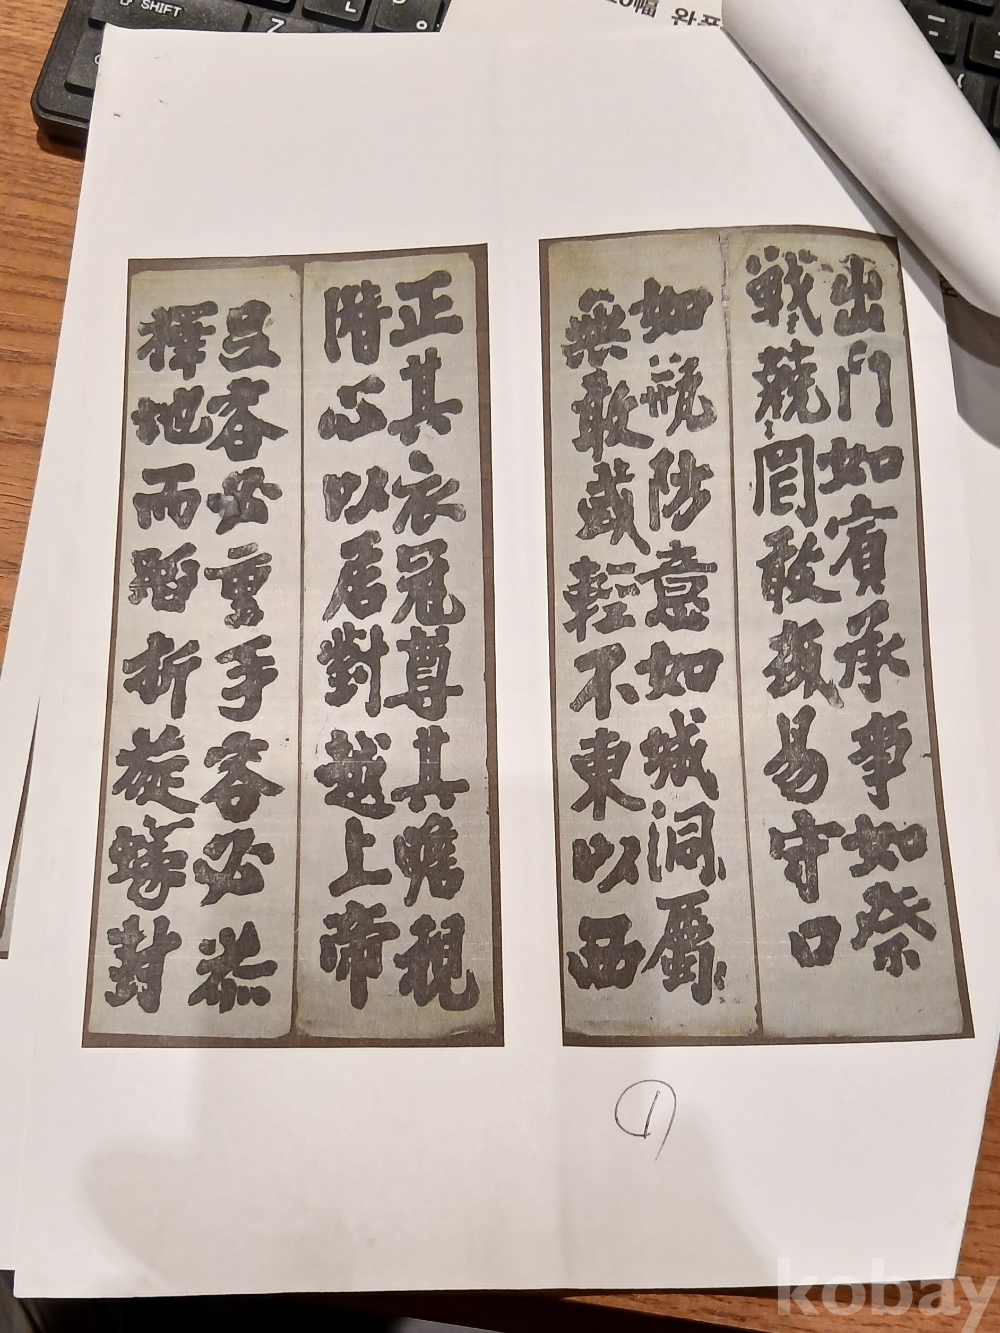 出門如賓承事如祭
戰〻兢〻罔敢或易守口
如瓶防意如城洞〻屬〻
無敢或輕不東以西
正其衣冠尊其瞻視
潛心以居對越上帝
足容必重手容必恭
擇地而蹈折旋蟻封
①
SHIFT
Z
kobay